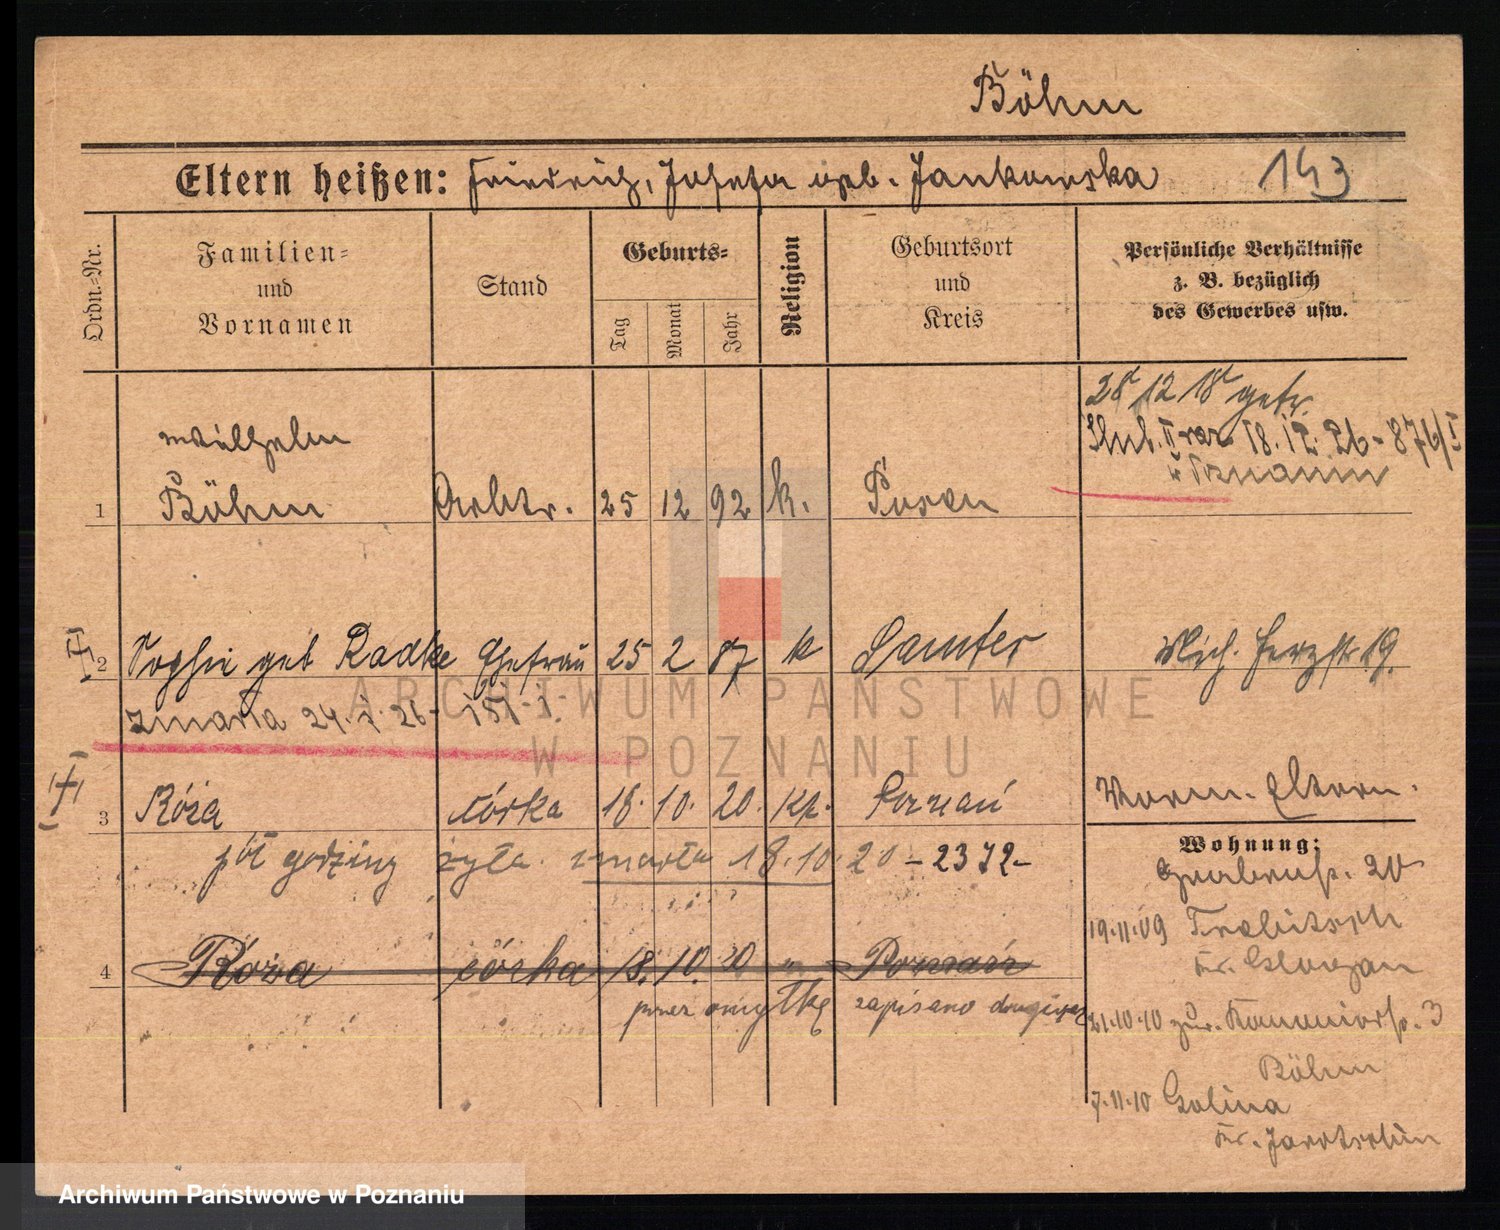 Böhm
Eltern heißen: Friedrich, Josefa geb. Jankowska 143
Ordn.-Nr.
Familien-
und
Vornamen
Stand
Geburts-
Tag
Monat
Jahr
Religion
Geburtsort
und
Kreis
Persönliche Verhältnisse
z. B. bezüglich
des Gewerbes usw.
28/12 18 getr.
Ślub. II raz 18.12.26 - 876/I
w Poznaniu
Wilhelm
1 Böhm Arbtr. 25 12 92 k. Posen
2 Sophie geb Radke Ehefrau 25 2 87 k Samter
zmarła 24.1.26 - 151-I.
3 Róża córka 18. 10. 20. kt. Poznań
pół godziny żyła. zmarła 18.10.20 - 2372-
4 Róża córka 18. 10. 20 " Poznań
przez omyłkę zapisano drugi raz
19. Vorm. Eltern.
Wohnung:
Grabenstr. 20
19.11.09 Trebitsch
Kr.
21.10.10 zur. 3
Böhm
7.11.10 Golina
Kr. Jarotschin
ARCHIWUM PAŃSTWOWE
W POZNANIU
Archiwum Państwowe w Poznaniu